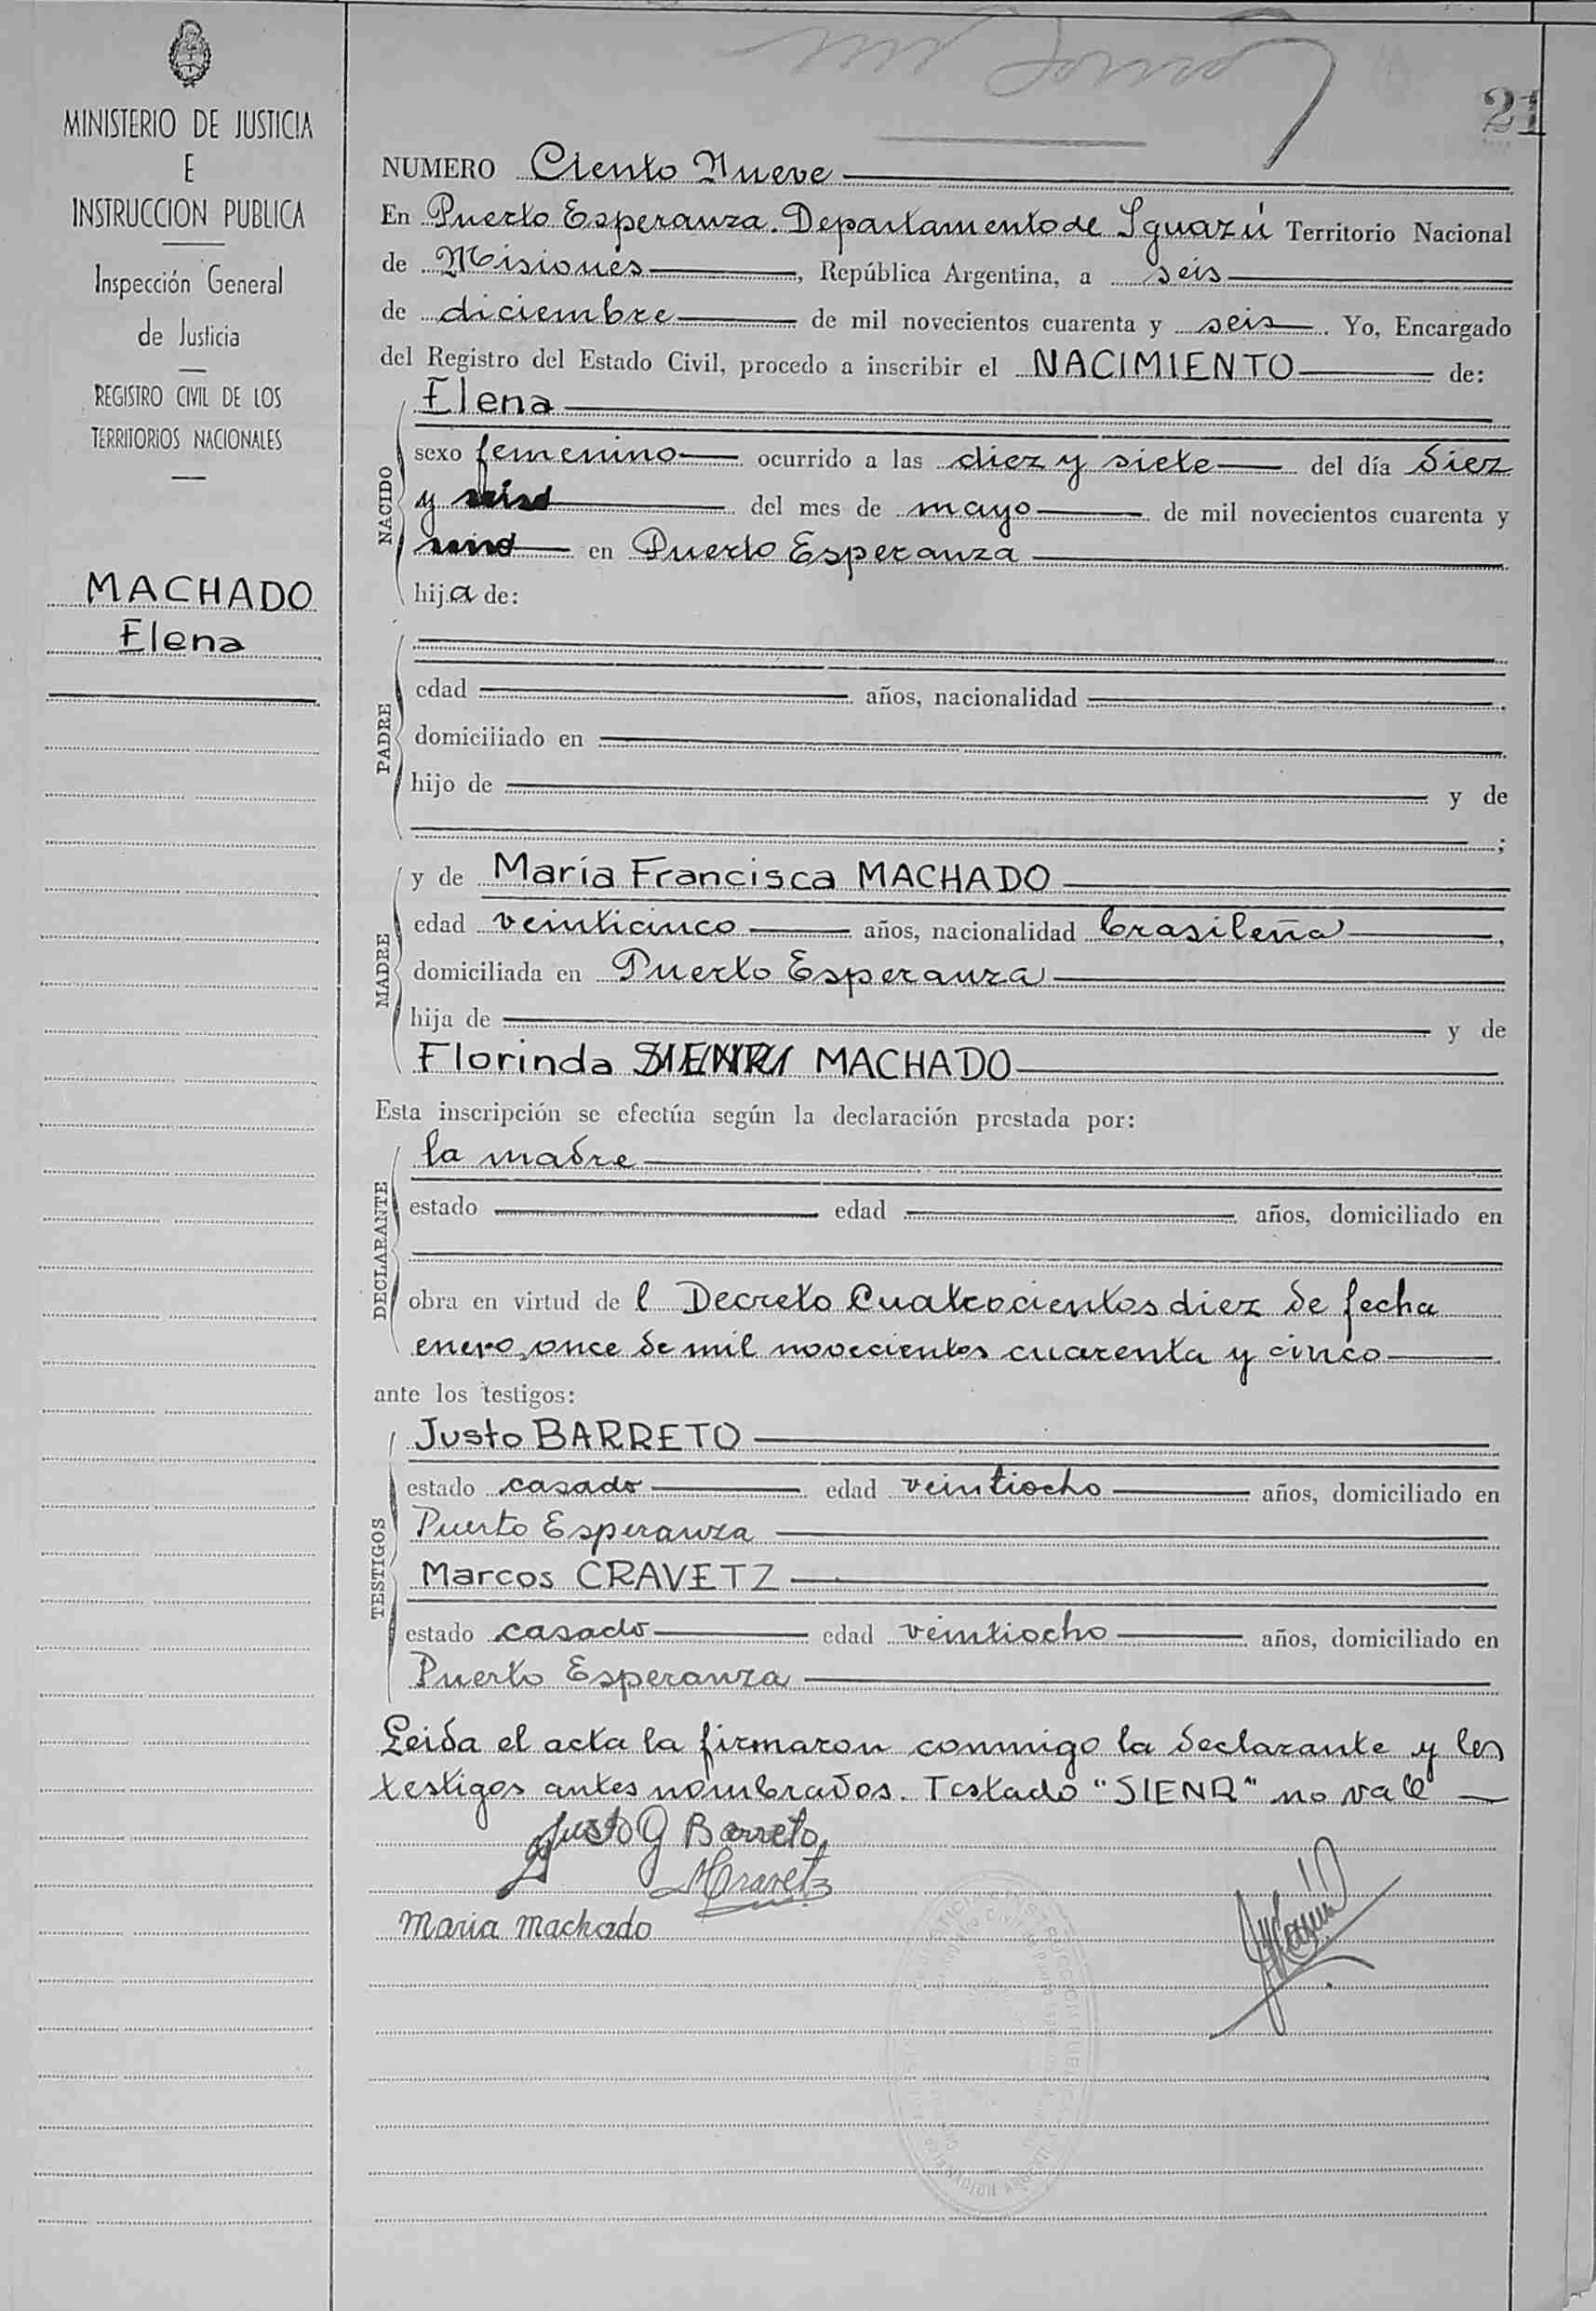 21
MINISTERIO DE JUSTICIA
E
INSTRUCCION PUBLICA
Inspección General
de Justicia
REGISTRO CIVIL DE LOS
TERRITORIOS NACIONALES
MACHADO
Elena
NUMERO Ciento Nueve
En Puerto Esperanza. Departamento de Iguazú Territorio Nacional
de Misiones, República Argentina, a seis
de diciembre de mil novecientos cuarenta y seis. Yo, Encargado
del Registro del Estado Civil, procedo a inscribir el NACIMIENTO de:
NACIDO
Elena
sexo femenino ocurrido a las diez y siete del día diez
y del mes de mayo de mil novecientos cuarenta y
en Puerto Esperanza
hija de:
PADRE
edad años, nacionalidad
domiciliado en
hijo de y de
;
MADRE
y de María Francisca MACHADO
edad veinticinco años, nacionalidad brasileña,
domiciliada en Puerto Esperanza
hija de y de
Florinda MACHADO
Esta inscripción se efectúa según la declaración prestada por:
DECLARANTE
la madre
estado edad años, domiciliado en
obra en virtud de l Decreto Cuatrocientos diez de fecha
enero, once de mil novecientos cuarenta y cinco
ante los testigos:
TESTIGOS
Justo BARRETO
estado casado edad veintiocho años, domiciliado en
Puerto Esperanza
Marcos CRAVETZ
estado casado edad veintiocho años, domiciliado en
Puerto Esperanza
Leida el acta la firmaron conmigo la declarante y los
testigos antes nombrados. Testado "SIENR" no vale
Justo G Barreto
MCravetz
Maria Machado